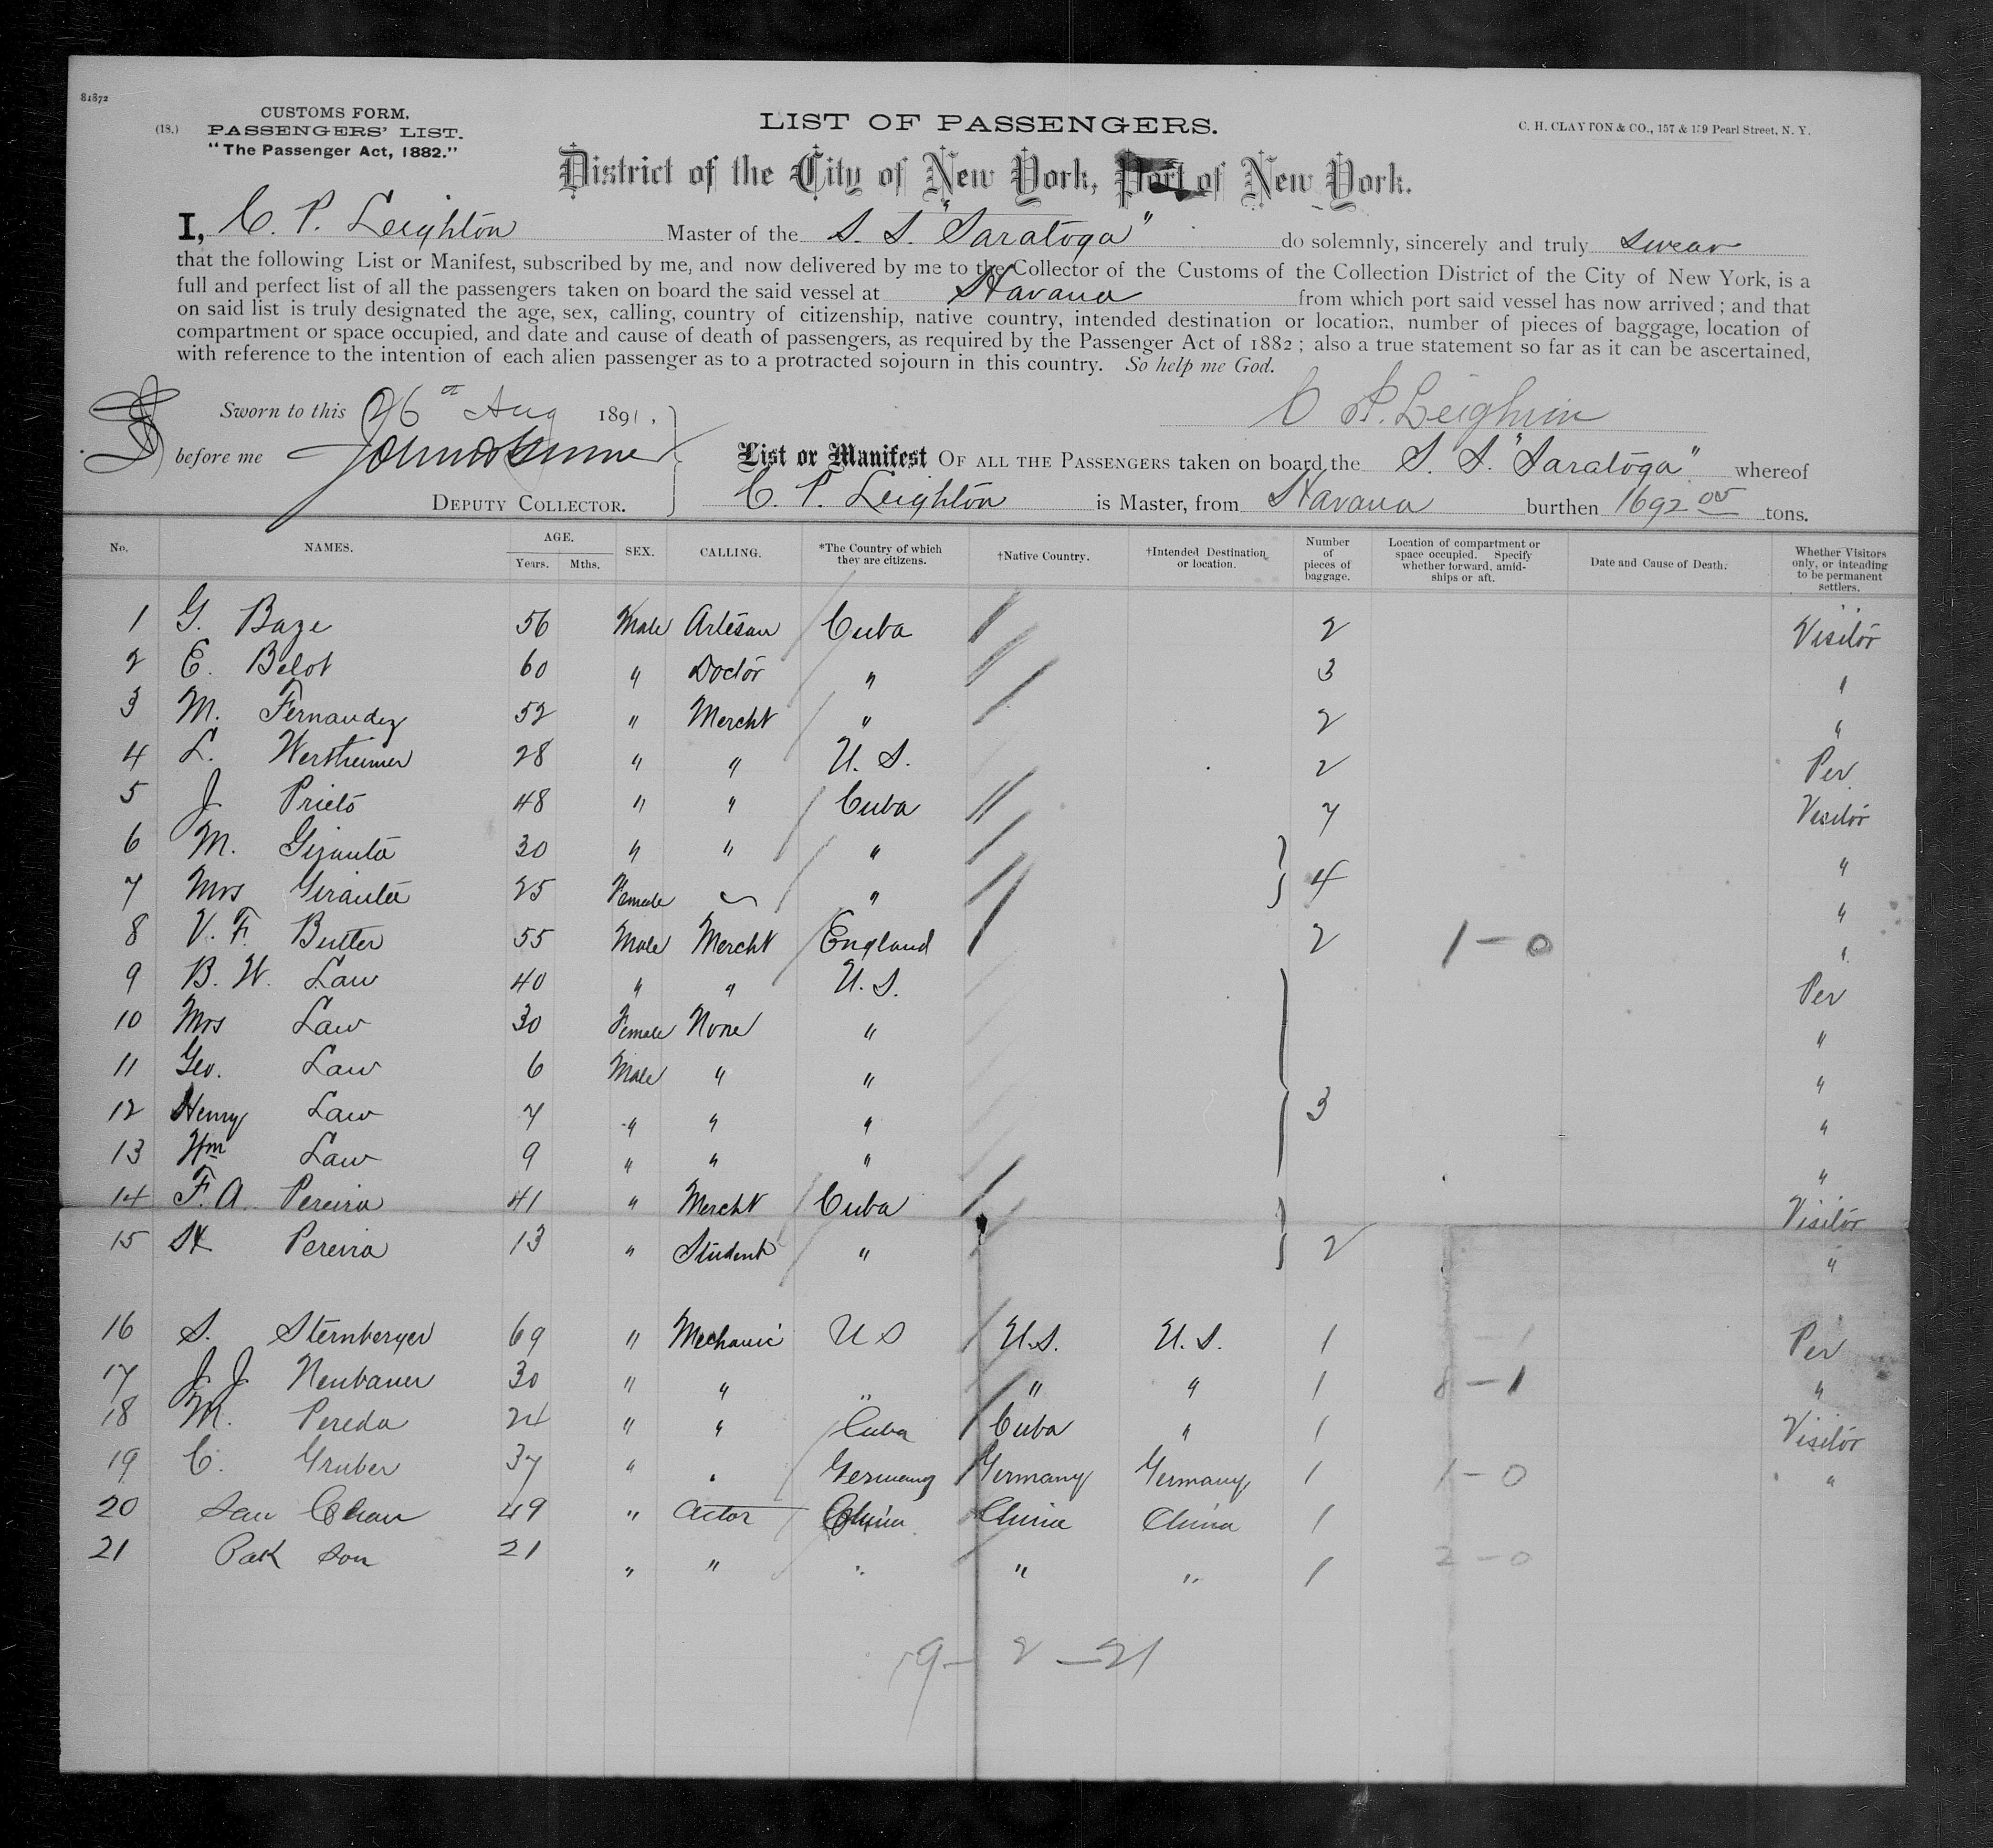 81872
(18.)
CUSTOMS FORM.
PASSENGERS' LIST.
"The Passenger Act, 1882."
LIST OF PASSENGERS.
C. H. CLAYTON & CO., 157 & 159 Pearl Street, N. Y.
District of the City of New York, Port of New York.
I, C. P. Leighton Master of the S. S. "Saratoga" do solemnly, sincerely and truly swear
that the following List or Manifest, subscribed by me, and now delivered by me to the Collector of the Customs of the Collection District of the City of New York, is a
full and perfect list of all the passengers taken on board the said vessel at Havana from which port said vessel has now arrived; and that
on said list is truly designated the age, sex, calling, country of citizenship, native country, intended destination or location, number of pieces of baggage, location of
compartment or space occupied, and date and cause of death of passengers, as required by the Passenger Act of 1882; also a true statement so far as it can be ascertained,
with reference to the intention of each alien passenger as to a protracted sojourn in this country. So help me God.
Sworn to this 26th Aug 1891,
C P. Leighton
before me
List or Manifest OF ALL THE PASSENGERS taken on board the S. S. "Saratoga" whereof
DEPUTY COLLECTOR.
C. P. Leighton is Master, from Havana burthen 1692 00 tons.
No. NAMES. AGE. Years. Mths. SEX. CALLING. *The Country of which they are citizens. †Native Country. †Intended Destination or location. Number of pieces of baggage. Location of compartment or space occupied. Specify whether forward, amidships or aft. Date and Cause of Death. Whether Visitors only, or intending to be permanent settlers.
1 G. Baze 56 Male Artesan Cuba 2 Visitor
2 E. Belot 60 " Doctor " 3 "
3 M. Fernandez 52 " Mercht " 2 "
4 L. Wertheimer 28 " " U. S. 2 Per
5 J Prieto 48 " " Cuba 7 Visitor
6 M. Girauta 30 " " " "
7 Mrs Girauta 25 Female " 4 "
8 V. F. Butler 55 Male Mercht England 2 1-0 "
9 B. W. Law 40 " " U. S. Per
10 Mrs Law 30 Female None " "
11 Geo. Law 6 Male " " "
12 Henry Law 7 " " " 3 "
13 Wm Law 9 " " " "
14 F. A. Pereira 41 " Mercht Cuba Visitor
15 Pereira 13 " Student " 2 "
16 S. Sternberger 69 " Mechanic U S U.S. U. S. 1 - 1 Per
17 J. J. Neubauer 30 " " " " " 1 8 - 1 "
18 M. Pereda 24 " " Cuba Cuba " 1 Visitor
19 C. Gruber 37 " " Germany Germany Germany 1 1-0 "
20 San Chan 49 " Actor China China China 1
21 Pak Son 21 " " " " " 1 2-0
19 - 2 - 21